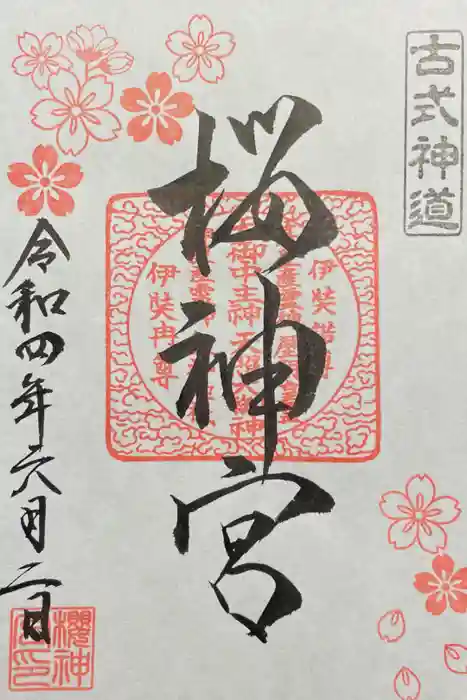 古式神道
桜神宮
伊奘諾尊
伊奘冉尊
令和四年六月二日
櫻神